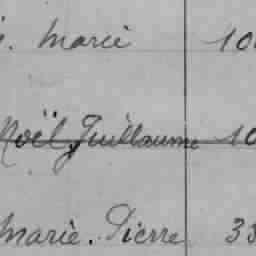 Marie 10
Noël Guillaume 10
Marie. Pierre 33